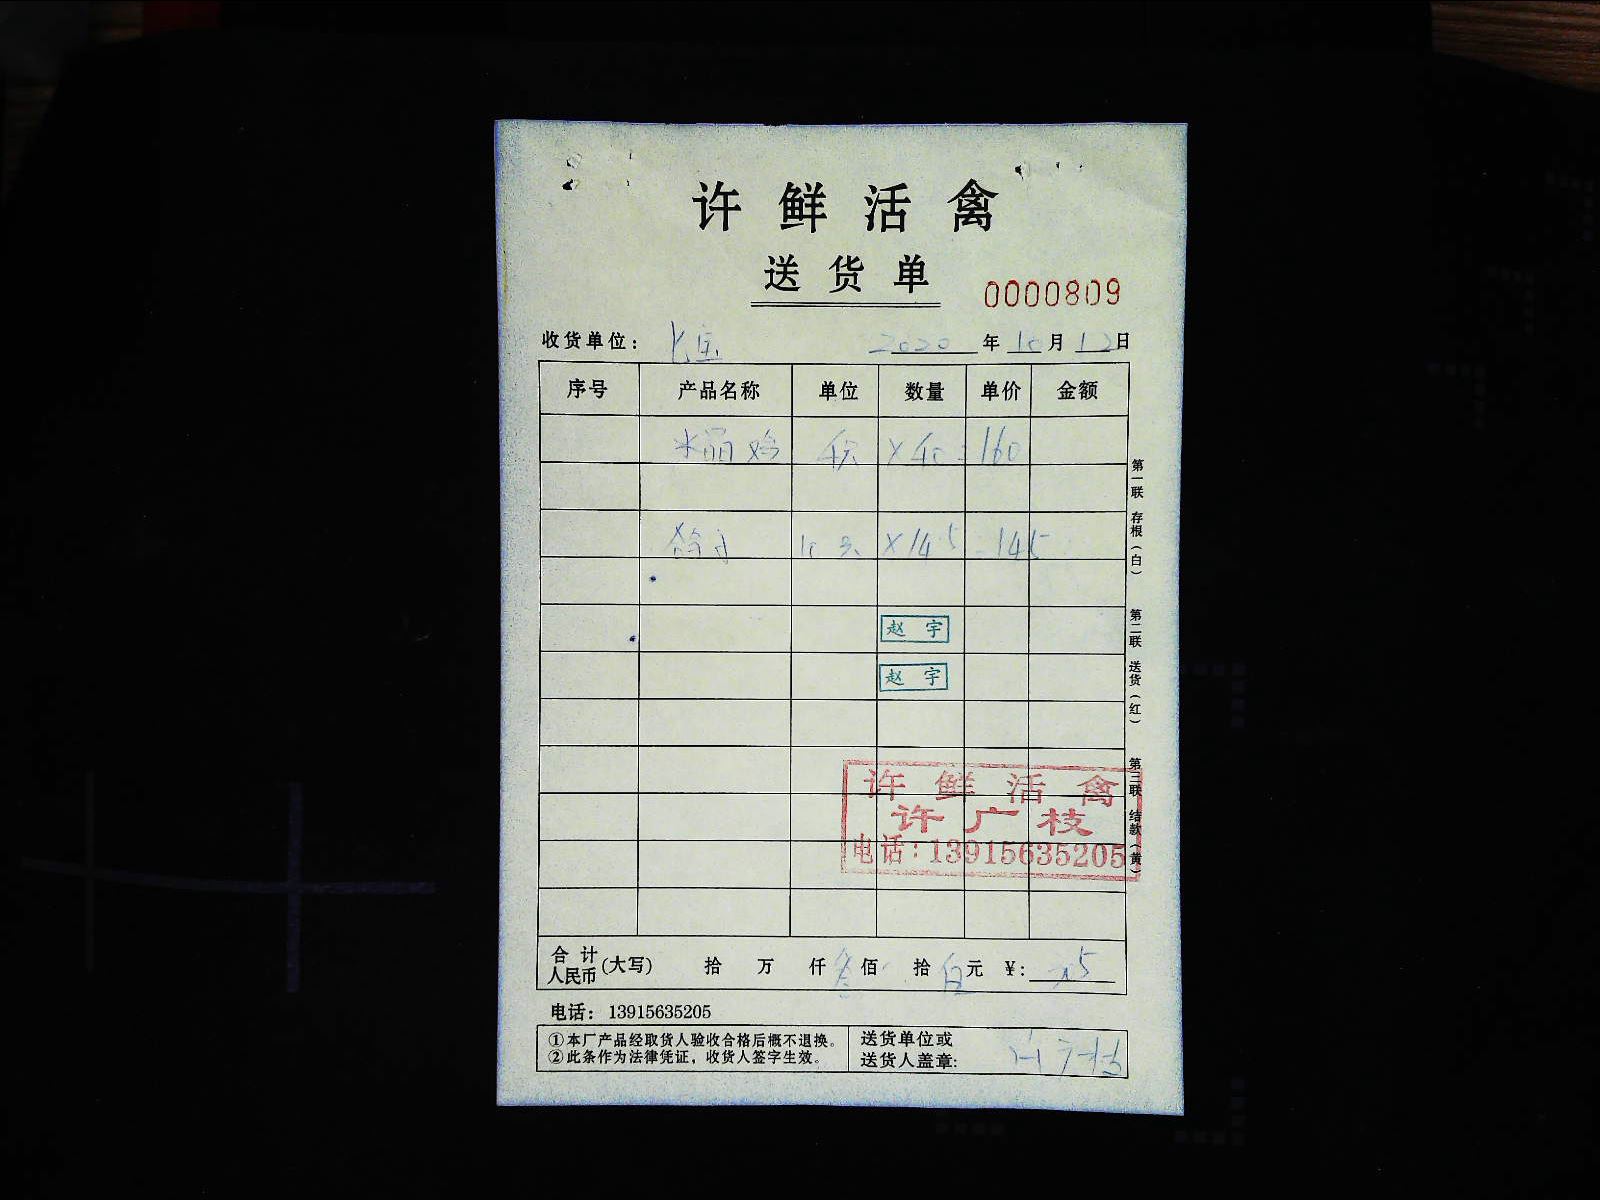 许鲜活禽
送货单
0000809
收货单位： 2020年10月12日
序号 产品名称 单位 数量 单价 金额
×40=160
×14.5=145
赵宇
赵宇
许鲜活禽
许广枝
电话：13915635205
第一联 存根（白） 第二联 送货（红） 第三联 结款（黄）
合计人民币(大写) 拾 万 仟叁佰 拾伍元 ￥：
电话：13915635205
①本厂产品经取货人验收合格后概不退换。
②此条作为法律凭证，收货人签字生效。
送货单位或
送货人盖章：许广枝